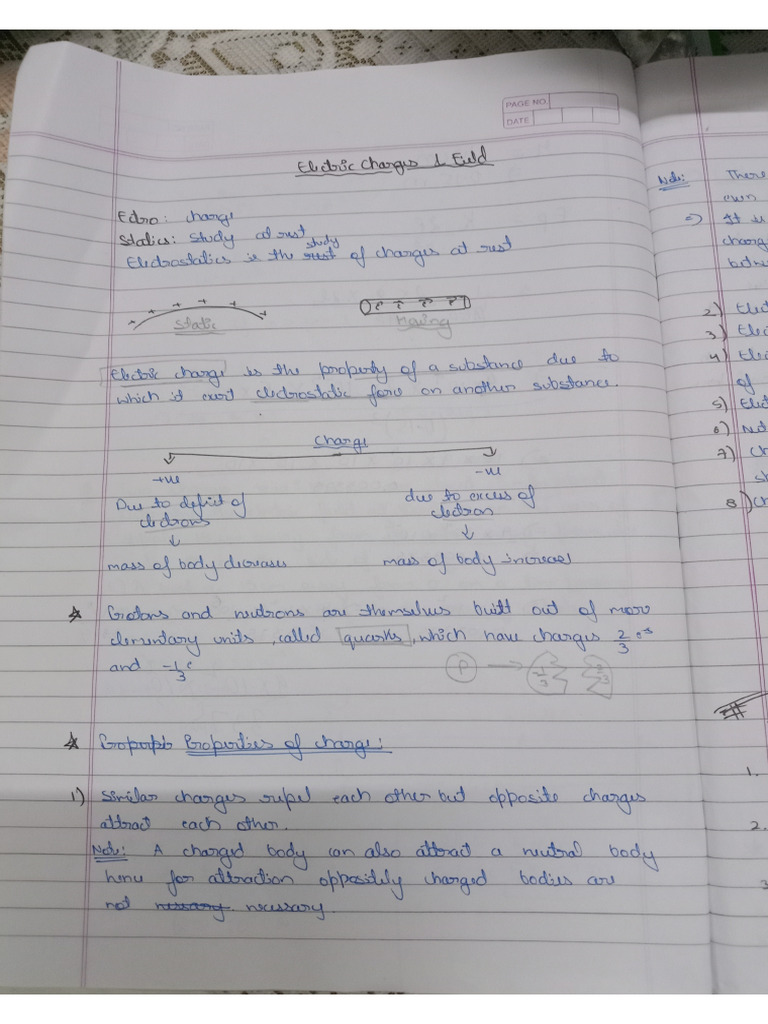 PAGE NO.
DATE
Electric Charges & Field
Edro: charge
Statics: Study at rest
study
Electrostatics is the rest of charges at rest
+ + + + + +
Static
Moving
Electric charge is the property of a substance due to
which it exert electrostatic force on another substance.
Charge
+ve
-ve
Due to deficit of
electrons
due to excess of
electron
↓
↓
mass of body decreases
mass of body increase
Protons and neutrons are themselves built out of more
elementary units, called quarks, which have charges 2/3 e
and -1/3 e
P → -1/3 2/3
Properties of charge:
1) Similar charges repel each other but opposite charges
attract each other.
Note: A charged body can also attract a neutral body
hence for attraction oppositely charged bodies are
not necessary necessary.
Note: There
own
=) It is
charg
betwe
2) Elect
3) Elec
4) Elec
of
5) Elect
6) Not
7) Ch
8) Ch
1.
2.
3